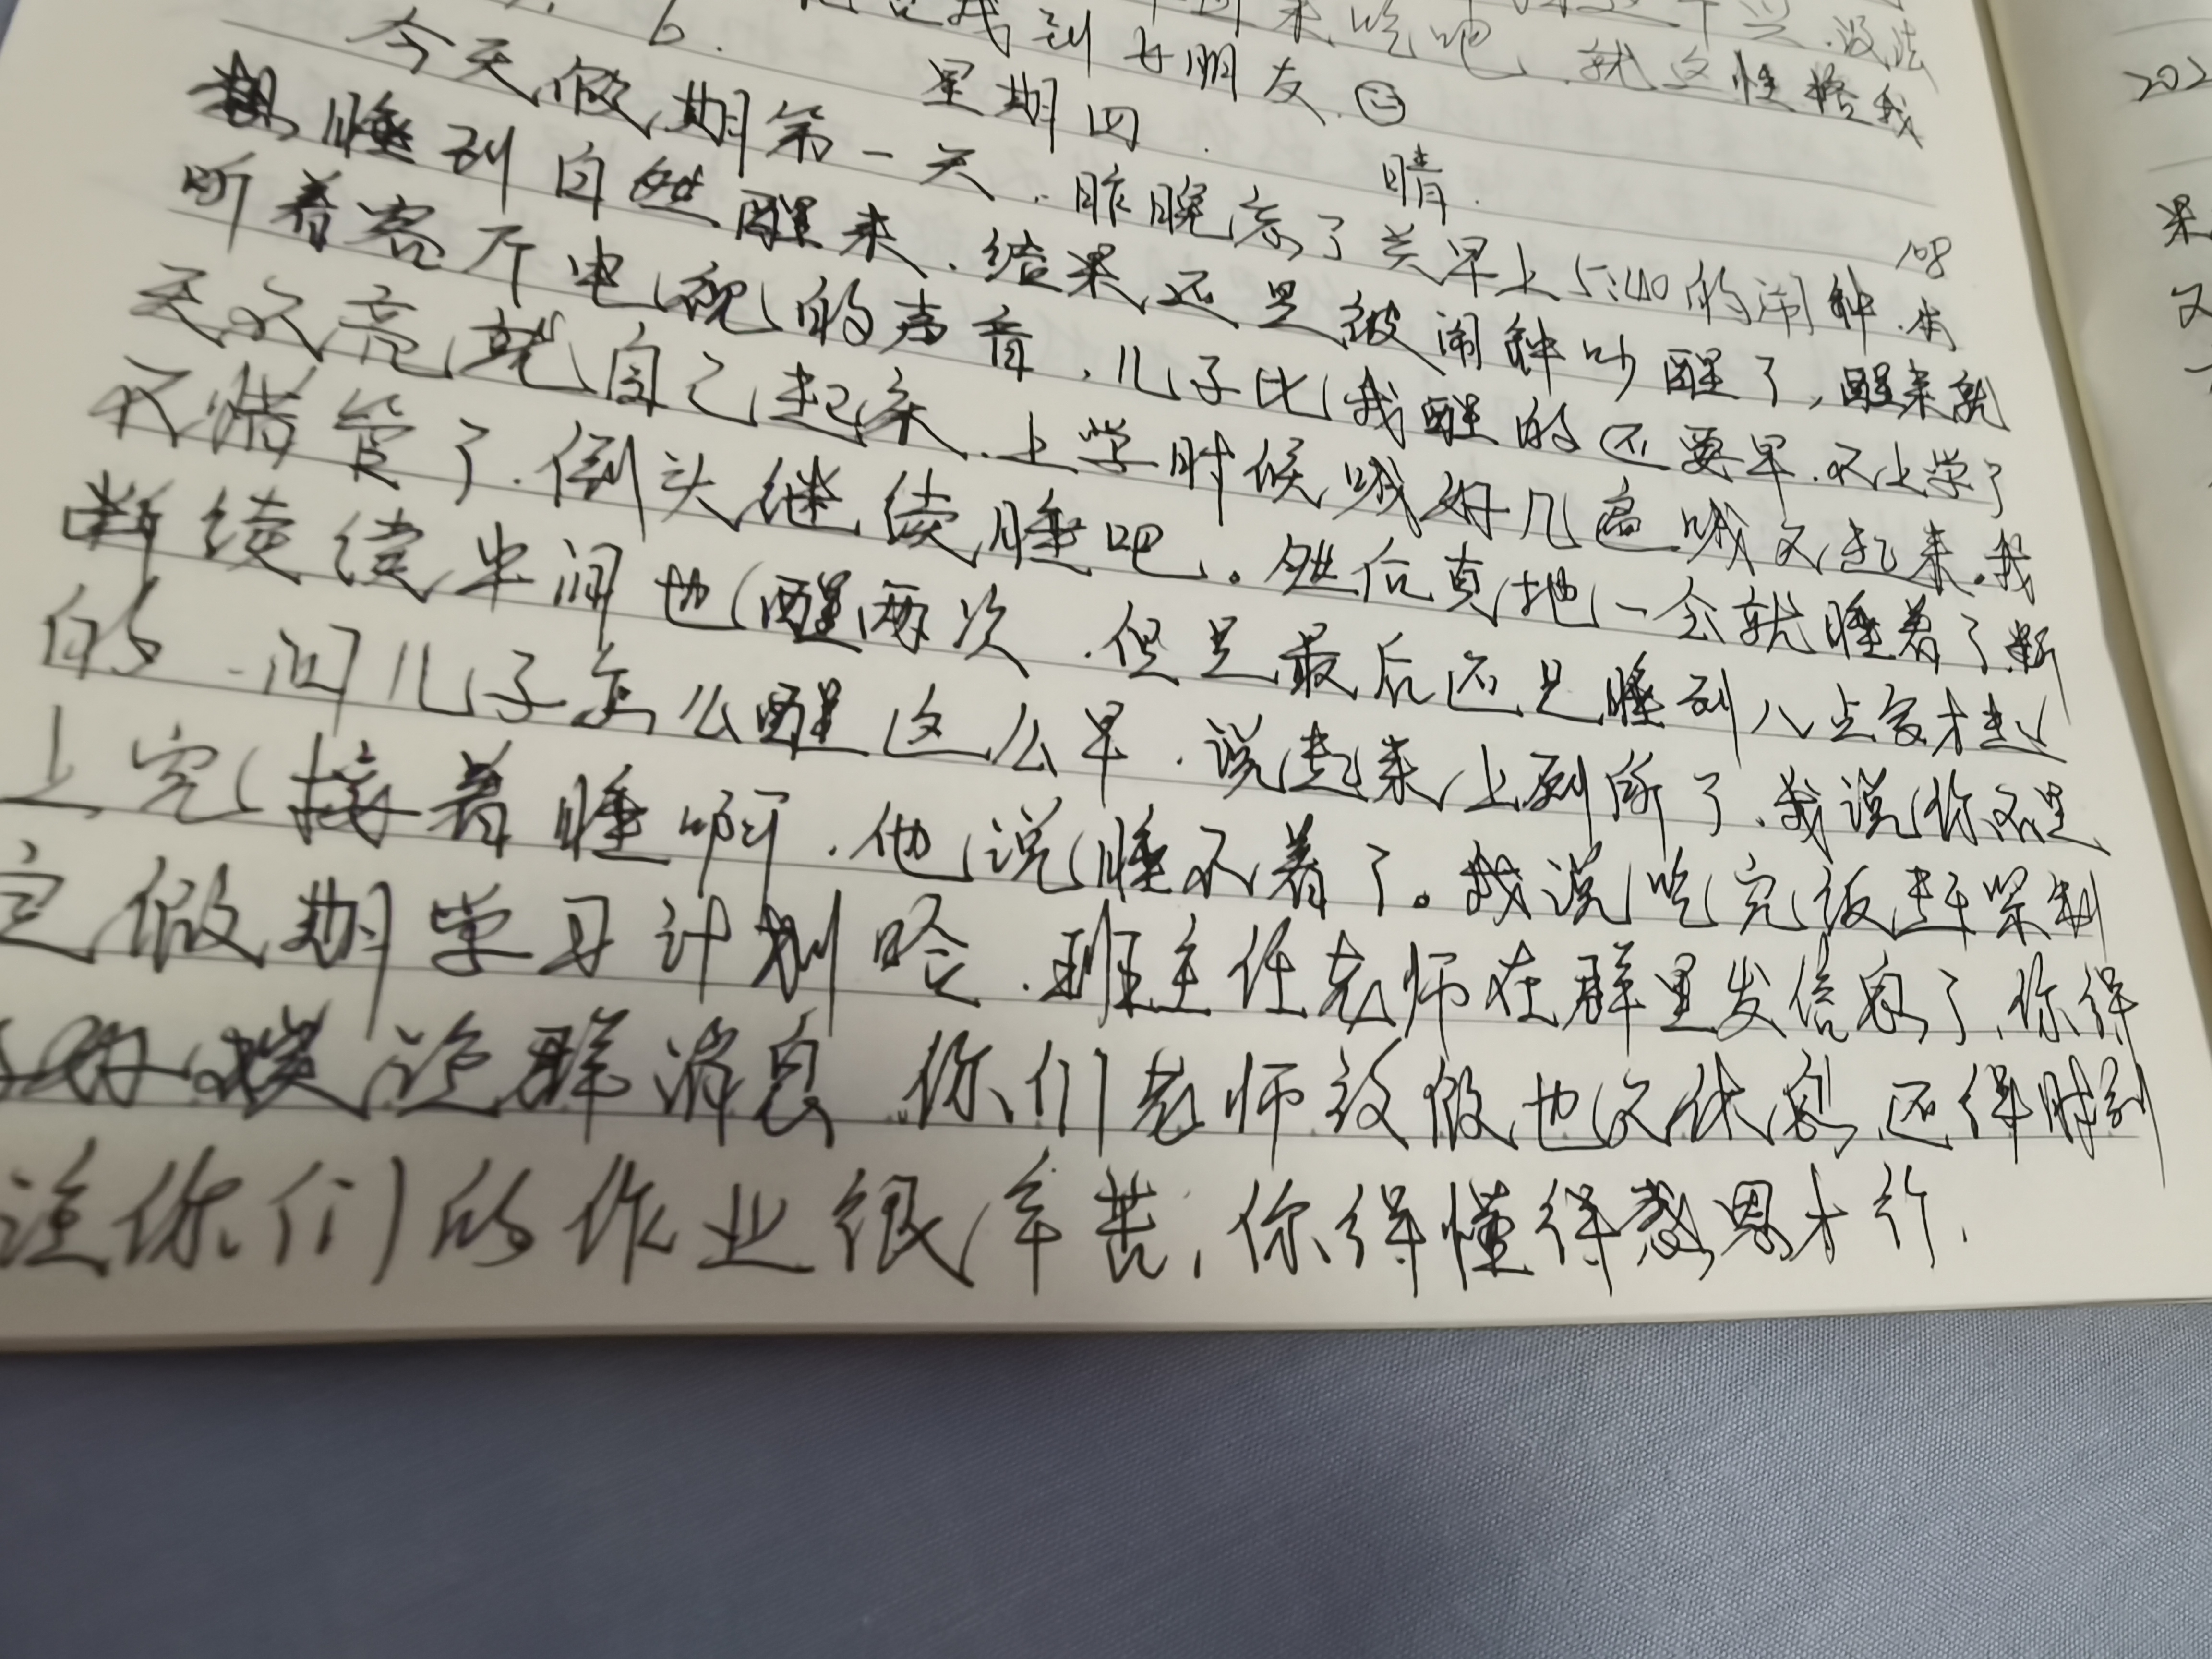 来吃吧.就这性格我
找到女朋友.
6. 星期四. 晴. 108
今天假期第一天.昨晚忘了关早上5:40的闹钟.本
想睡到自然醒来.结果还是被闹钟吵醒了,醒来就
听着客厅电视的声音.儿子比我醒的还要早.不上学了
天不亮就自己起来.上学时候喊好几遍喊不起来.我
不惜管了.倒头继续睡吧。然后真地一会就睡着了.断
断续续中间也醒两次.但是最后还是睡到八点多才起
的.问儿子怎么醒这么早.说起来上厕所了.我说你不是
上完接着睡啊.他说睡不着了。我说吃完饭赶紧制
定假期学习计划哈.班主任老师在群里发信息了,你得
群消息.你们老师放假也不休息,还得时刻
你们的作业很辛苦,你得懂得感恩才行.
202